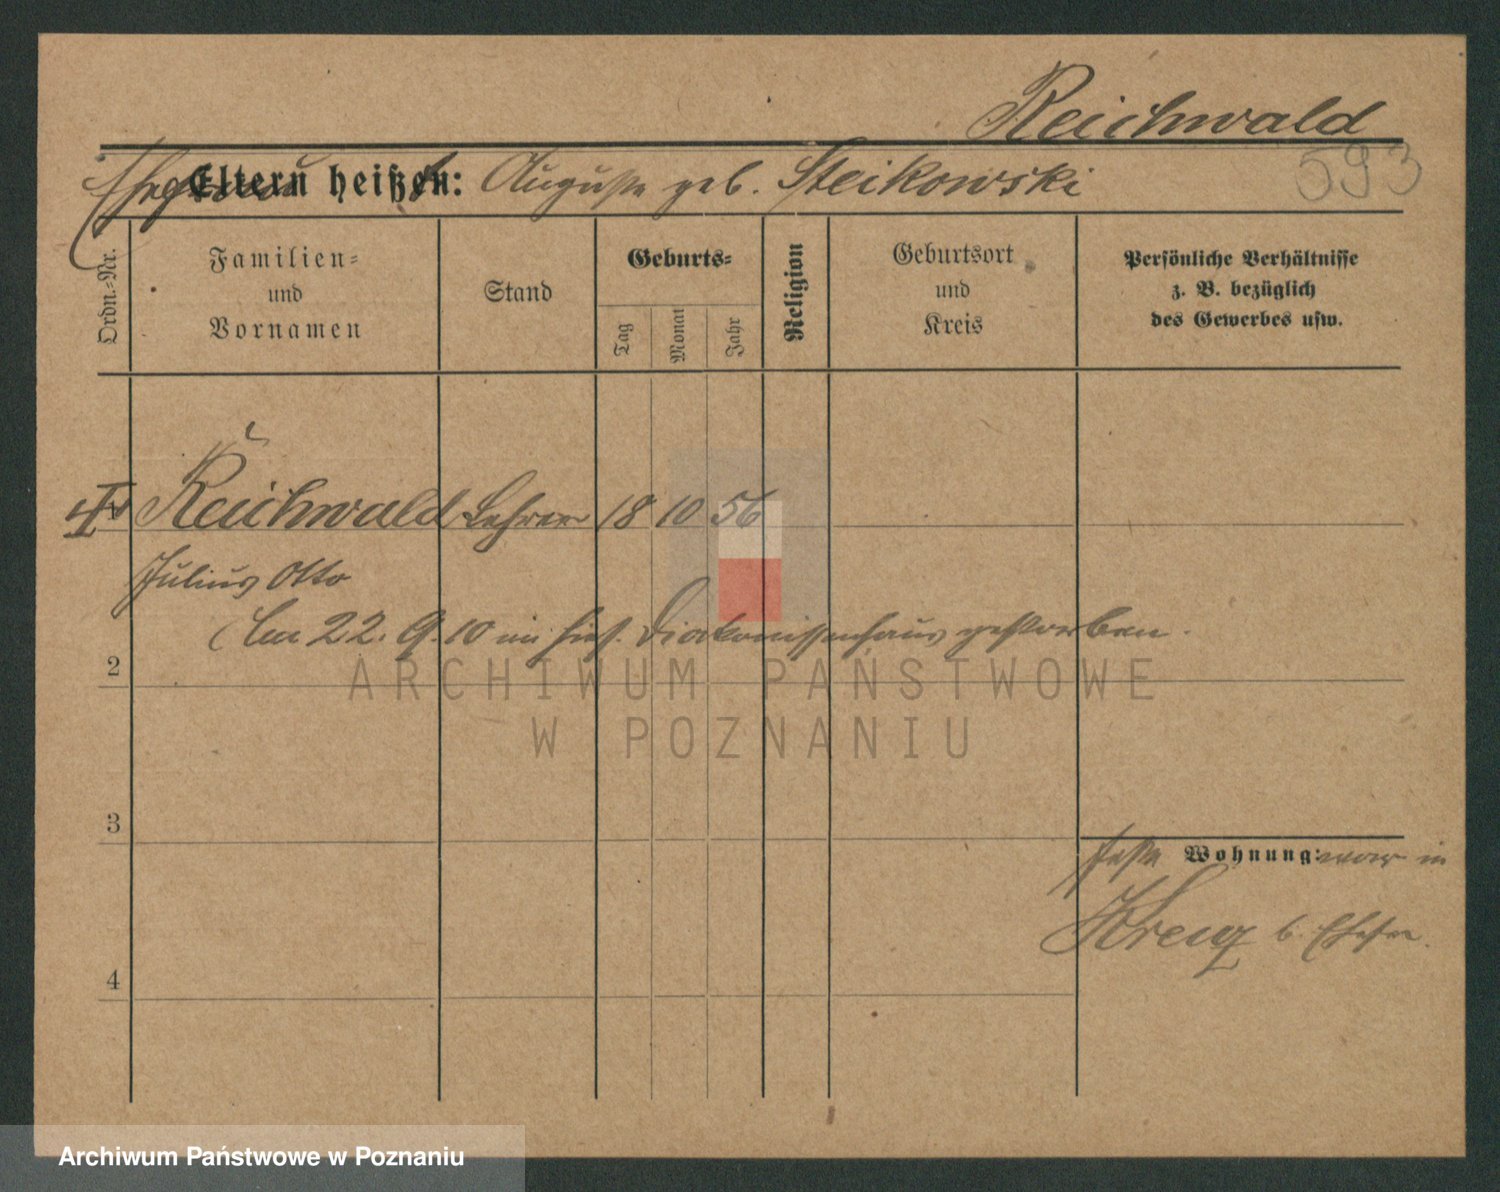 Reichwald
593
Eltern heißen: Auguste geb. Steikowski
Ordn.-Nr.
Familien-
und
Vornamen
Stand
Geburts-
Tag
Monat
Jahr
Religion
Geburtsort
und
Kreis
Persönliche Verhältnisse
z. B. bezüglich
des Gewerbes usw.
1 Reichwald Lehrer 18 10 56
Julius Otto
am 22. 9. 10 im hies. Diakonissenhaus gestorben.
2
ARCHIWUM PAŃSTWOWE
W POZNANIU
3
feste Wohnung: war in
Kreuz b.
4
Archiwum Państwowe w Poznaniu